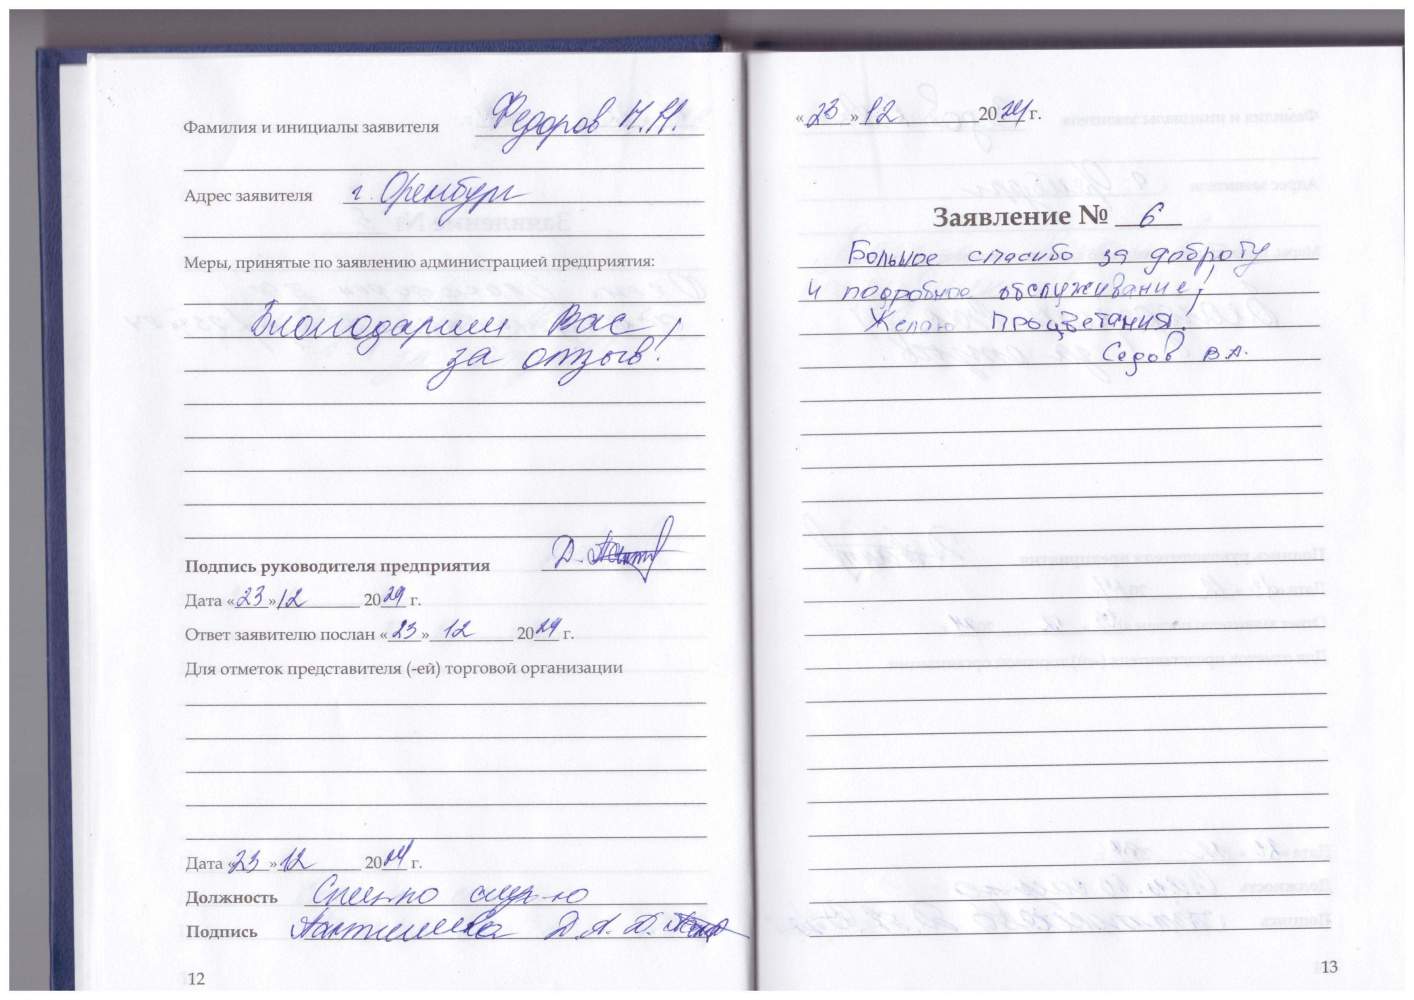 Фамилия и инициалы заявителя Федоров Н.Н.
Адрес заявителя г. Оренбург
Меры, принятые по заявлению администрацией предприятия:
Благодарим Вас
за отзыв!
Подпись руководителя предприятия Д.
Дата «23» 12 2024 г.
Ответ заявителю послан «23» 12 2024 г.
Для отметок представителя (-ей) торговой организации
Дата «23» 12 2024 г.
Должность Спец. по
Подпись Д.А. Д.
12
«23» 12 2024 г.
Заявление № 6
Большое спасибо за доброту
и подробное обслуживание!
Желаю процветания!
Седов В.А.
13